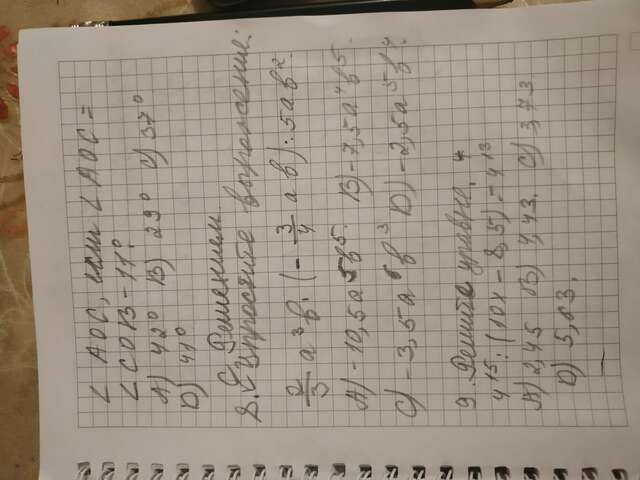 ∠ AOC, если ∠ AOC =
∠ COB - 11°
A) 42° B) 29° C) 37°
D) 41°
С Решением
8. Упростите выражение:
2/3 a³b · (- 3/4 ab) : 5ab².
A) -10,5a⁵b⁵. B) -7,5a⁴b⁵.
C) -3,5a⁶b³ D) -2,5a⁵b⁴.
9. Решите уравне.
4¹⁵ : (10x - 8,5) = 4¹³
A) 2,45 B) 4,43. C) 3,73
D) 5,63.